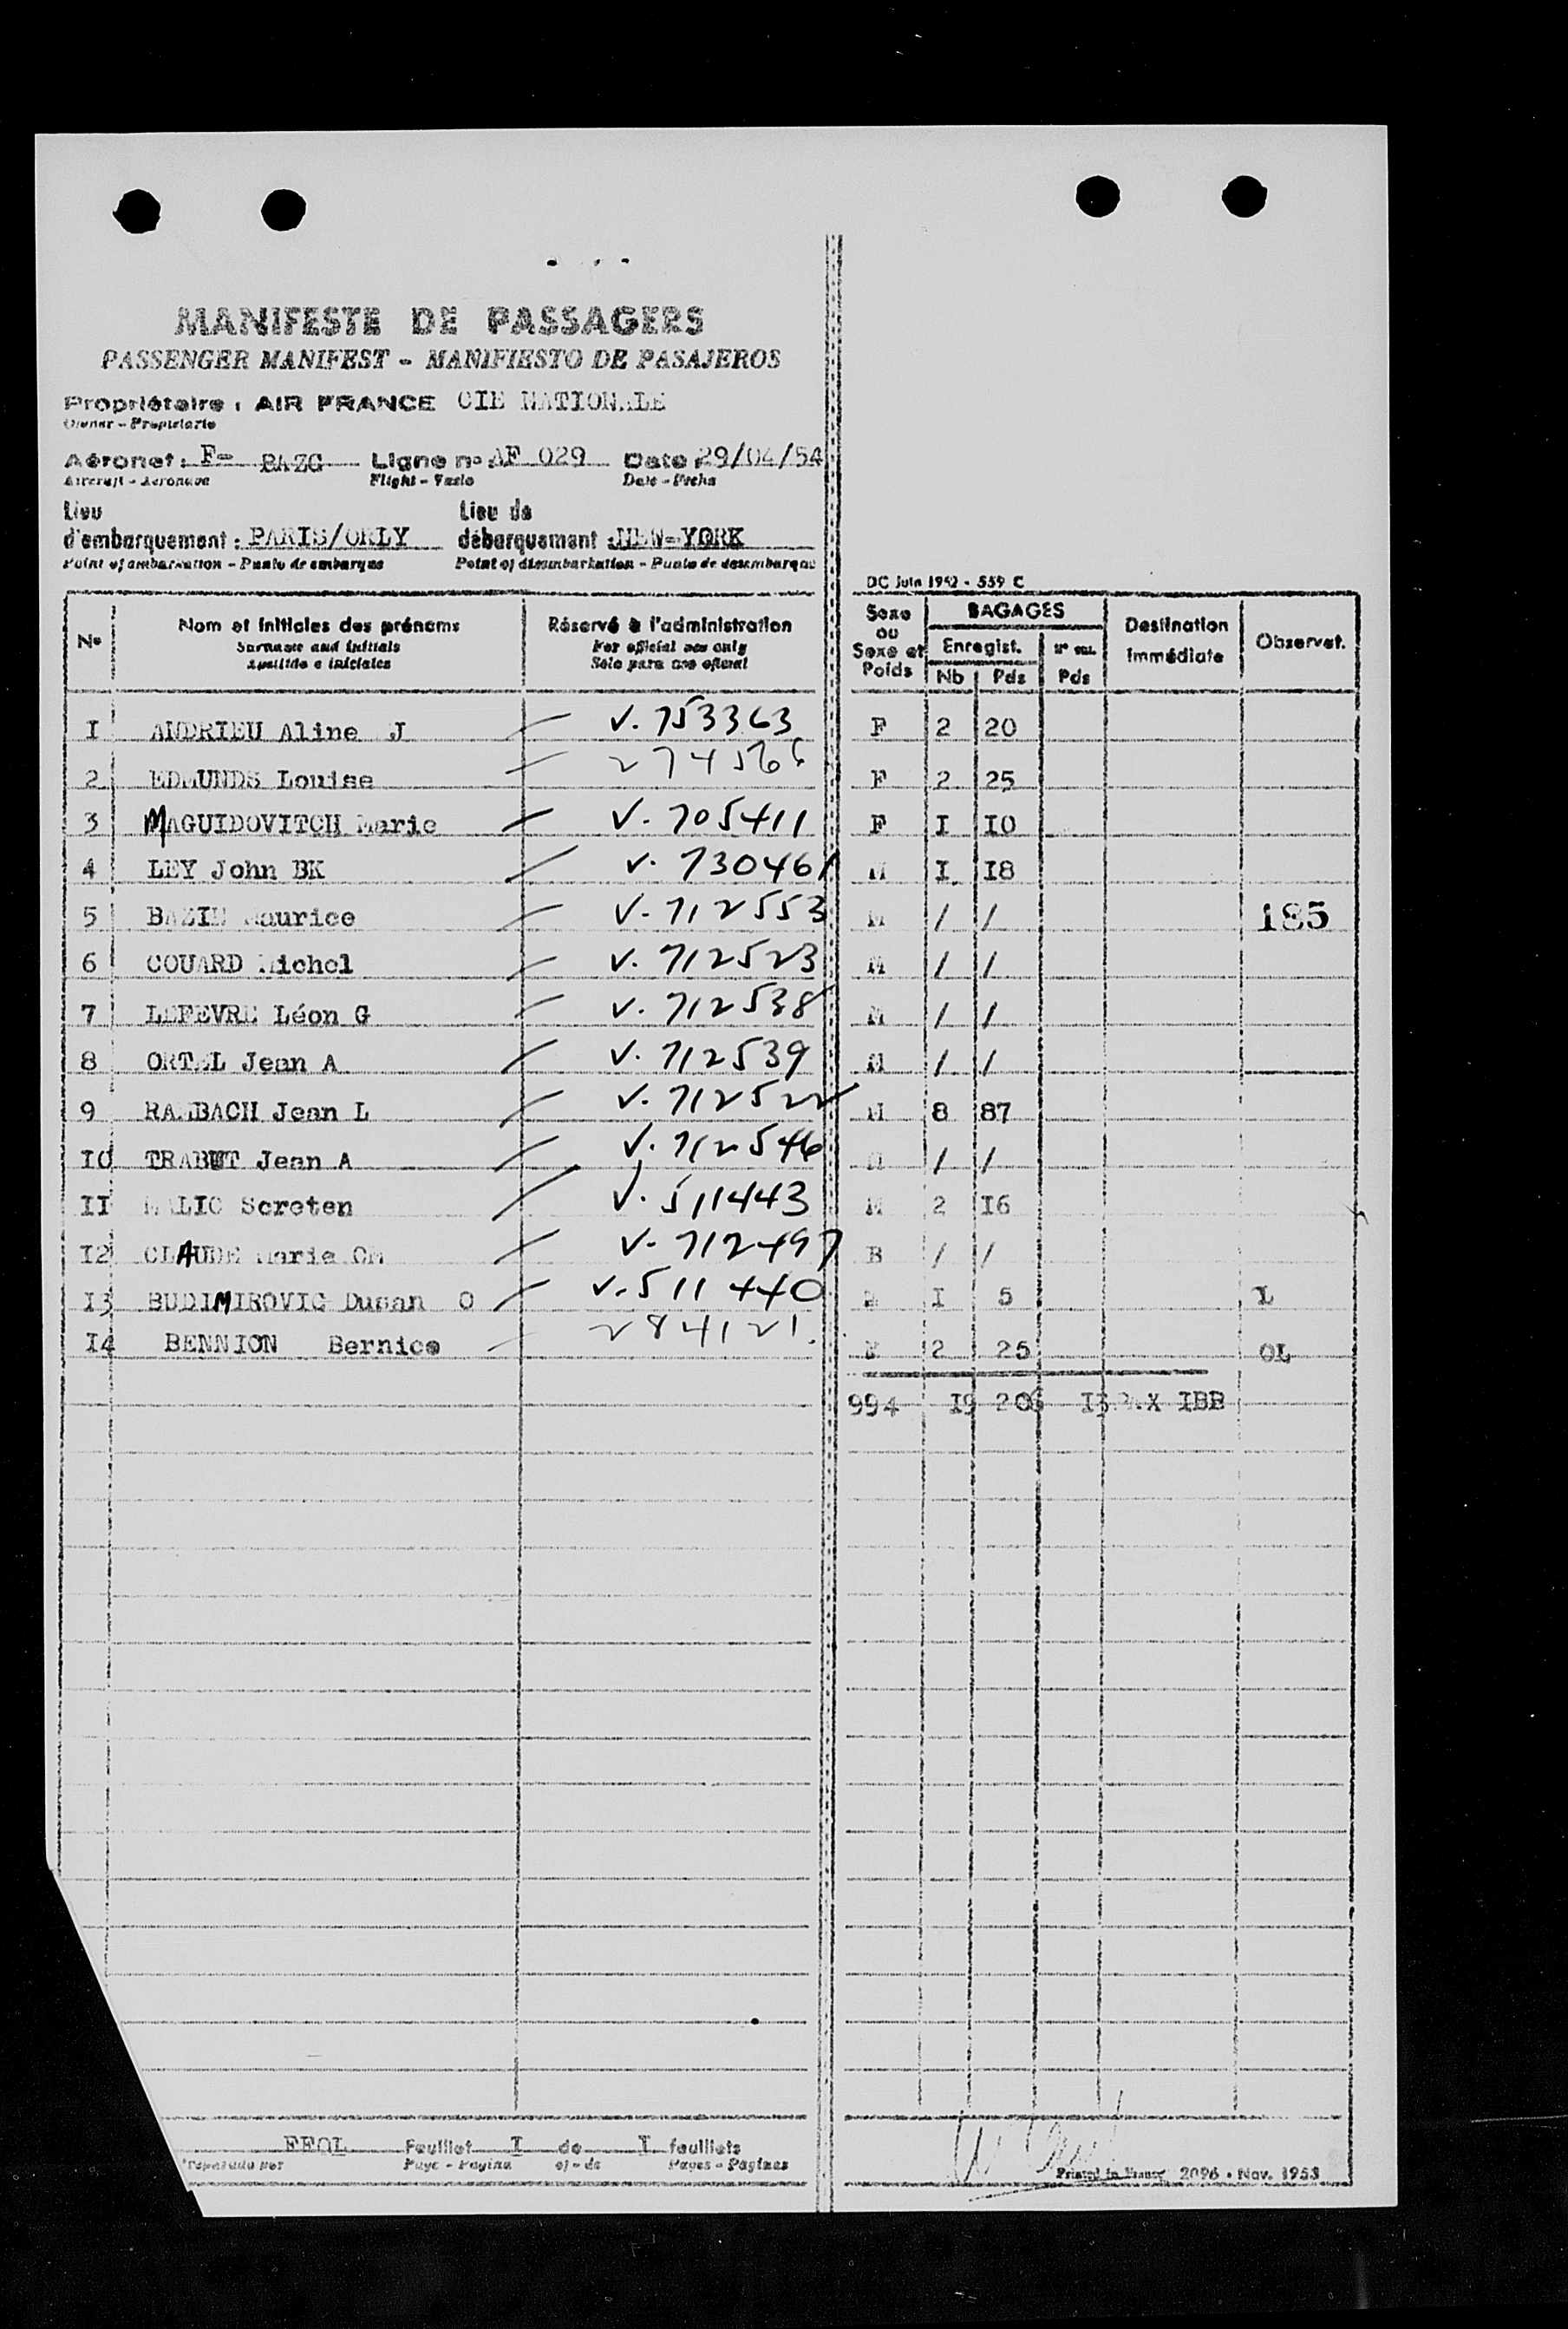 MANIFESTE DE PASSAGERS
PASSENGER MANIFEST - MANIFIESTO DE PASAJEROS
Propriétaire : AIR FRANCE CIE NATIONALE
Owner - Propietario
Aéronef : F- BAZG Ligne n° AF 029 Date 29/04/54
Aircraft - Aeronave Flight - Vuelo Date - Fecha
Lieu d'embarquement : PARIS/ORLY Lieu de débarquement : NEW-YORK
Point of embarkation - Punto de embarque Point of disembarkation - Punto de desembarque
DC Juin 1952 - 559 C
N° Nom et initiales des prénoms Réservé à l'administration Sexe ou Sexe et Poids BAGAGES Destination Immédiate Observat.
Surname and initials For official use only Enregist.
Apellido e iniciales Solo para uso oficial Nb Pds Pds
I ANDRIEU Aline J V. 753363 F 2 20
2 EDMUNDS Louise 274566 F 2 25
3 MAGUIDOVITCH Marie V. 705411 F I I0
4 LEY John BK V. 730461 M I I8
5 BAZIN Maurice V. 712553 M / / 185
6 COUARD Michel V. 712523 M / /
7 LEFEVRE Léon G V. 712538 M / /
8 ORTEL Jean A V. 712539 M / /
9 RAMBACH Jean L V. 712522 M 8 87
I0 TRABUT Jean A V. 712546 M / /
II MALIC Screten V. 511443 M 2 I6
I2 CLAUDE Marie CM V. 712497 B / /
I3 BUDIMIROVIC Dusan O V. 511440 I 5 L
I4 BENNION Bernice 284121 2 25 OL
994 I9 206 I3 PAX IBB
Feuillet I de I feuillets
Page - Pagina of - de Pages - Paginas
Printed in France 2096 - Nov. 1953